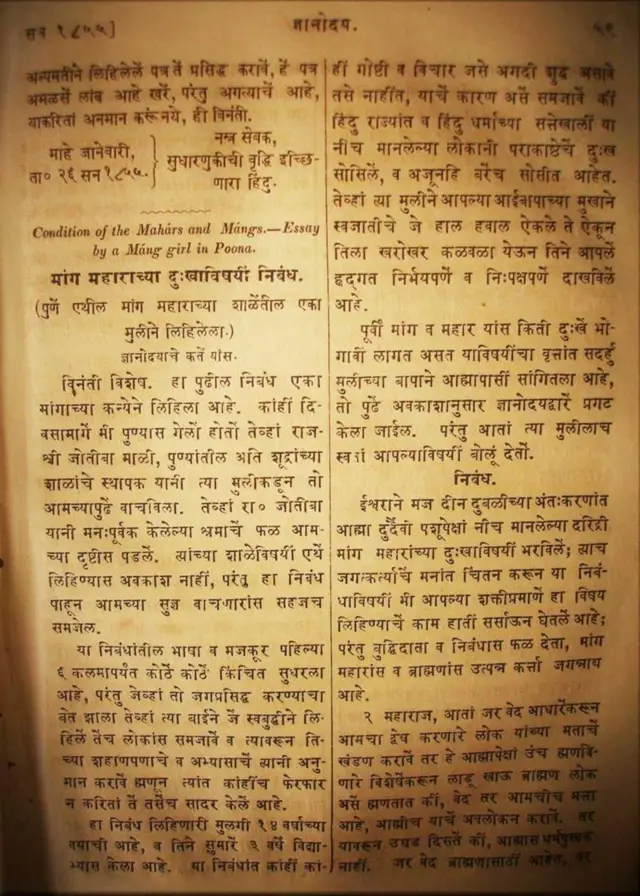 सन १८५५]
ज्ञानोदय.
५९
अल्पमतीने लिहिलेलें पत्र तें प्रसिद्ध करावें, हें पत्र
अमळसें लांब आहे खरें, परंतु अगत्याचें आहे,
याकरितां अनमान करूं नये, ही विनंती.
माहे जानेवारी,
ता० २६ सन १८५५.
नम्र सेवक,
सुधारणुकीची वृद्धि इच्छि-
णारा हिंदु.
Condition of the Mahárs and Mángs.—Essay
by a Máng girl in Poona.
मांग महाराच्या दुःखाविषयीं निबंध.
(पुणें एथील मांग महाराच्या शाळेंतील एका
मुलीने लिहिलेला.)
ज्ञानोदयाचे कर्ते यांस.
विनंती विशेष. हा पुढील निबंध एका
मांगाच्या कन्येने लिहिला आहे. कांहीं दि-
वसामागें मी पुण्यास गेलों होतों तेव्हां राज-
श्री जोतीबा माळी, पुण्यांतील अति शूद्रांच्या
शाळांचे स्थापक यानी त्या मुलीकडून तो
आमच्यापुढें वाचविला. तेव्हां रा० जोतीबा
यानी मनःपूर्वक केलेल्या श्रमाचें फळ आम-
च्या दृष्टीस पडलें. त्यांच्या शाळेविषयीं एथें
लिहिण्यास अवकाश नाहीं, परंतु हा निबंध
पाहून आमच्या सुज्ञ वाचणारांस सहजच
समजेल.
या निबंधांतील भाषा व मजकूर पहिल्या
६ कलमापर्यंत कोठें कोठें किंचित सुधरला
आहे, परंतु जेव्हां तो जगप्रसिद्ध करण्याचा
बेत झाला तेव्हां त्या बाईने जें स्वबुद्धीने लि-
हिलें तेंच लोकांस समजावें व त्यावरून ति-
च्या शहाणपणाचें व अभ्यासाचें त्यानी अनु-
मान करावें ह्मणून त्यांत कांहींच फेरफार
न करितां तें तसेंच सादर केलें आहे.
हा निबंध लिहिणारी मुलगी १४ वर्षांच्या
वयाची आहे, व तिने सुमारें ३ वर्षें विद्या-
भ्यास केला आहे. या निबंधांत कांहीं कां-
हीं गोष्टी व विचार जसे अगदी शुद्ध असावे
तसे नाहींत, याचें कारण असें समजावें कीं
हिंदु राज्यांत व हिंदु धर्माच्या सत्तेखालीं या
नीच मानलेल्या लोकानी पराकाष्ठेचें दुःख
सोसिलें, व अजूनहि बरेंच सोसीत आहेत.
तेव्हां त्या मुलीने आपल्या आईबापाच्या मुखाने
स्वजातीचे जे हाल हवाल ऐकले ते ऐकून
तिला खरोखर कळवळा येऊन तिने आपलें
हृद्गत निर्भयपणें व निःपक्षपणें दाखविलें
आहे.
पूर्वीं मांग व महार यांस किती दुःखें भो-
गावीं लागत असत याविषयींचा वृत्तांत सदर्हु
मुलीच्या बापाने आह्मापासीं सांगितला आहे,
तो पुढें अवकाशानुसार ज्ञानोदयद्वारें प्रगट
केला जाईल. परंतु आतां त्या मुलीलाच
स्वतां आपल्याविषयीं बोलूं देतों.
निबंध.
ईश्वराने मज दीन दुबळीच्या अंतःकरणांत
आह्मा दुर्दैवी पशूपेक्षां नीच मानलेल्या दरिद्री
मांग महारांच्या दुःखाविषयीं भरविलें; त्याच
जगत्कर्त्याचें मनांत चिंतन करून या निबं-
धाविषयीं मी आपल्या शक्तीप्रमाणें हा विषय
लिहिण्याचें काम हातीं सर्साऊन घेतलें आहे;
परंतु बुद्धिदाता व निबंधास फळ देता, मांग
महारांस व ब्राह्मणांस उत्पन्न कर्त्ता जगन्नाथ
आहे.
२ महाराज, आतां जर वेद आधारेंकरून
आमचा द्वेष करणारे लोक यांच्या मताचें
खंडण करावें तर हे आह्मापेक्षां उंच ह्मणवि-
णारे विशेषेंकरून लाडू खाऊ ब्राह्मण लोक
असें ह्मणतात कीं, वेद तर आमचीच मत्ता
आहे, आह्मीच याचें अवलोकन करावें. तर
यावरून उघड दिसतें कीं, आह्मास धर्मपुस्तक
नाहीं. जर वेद ब्राह्मणासाठीं आहेत, तर